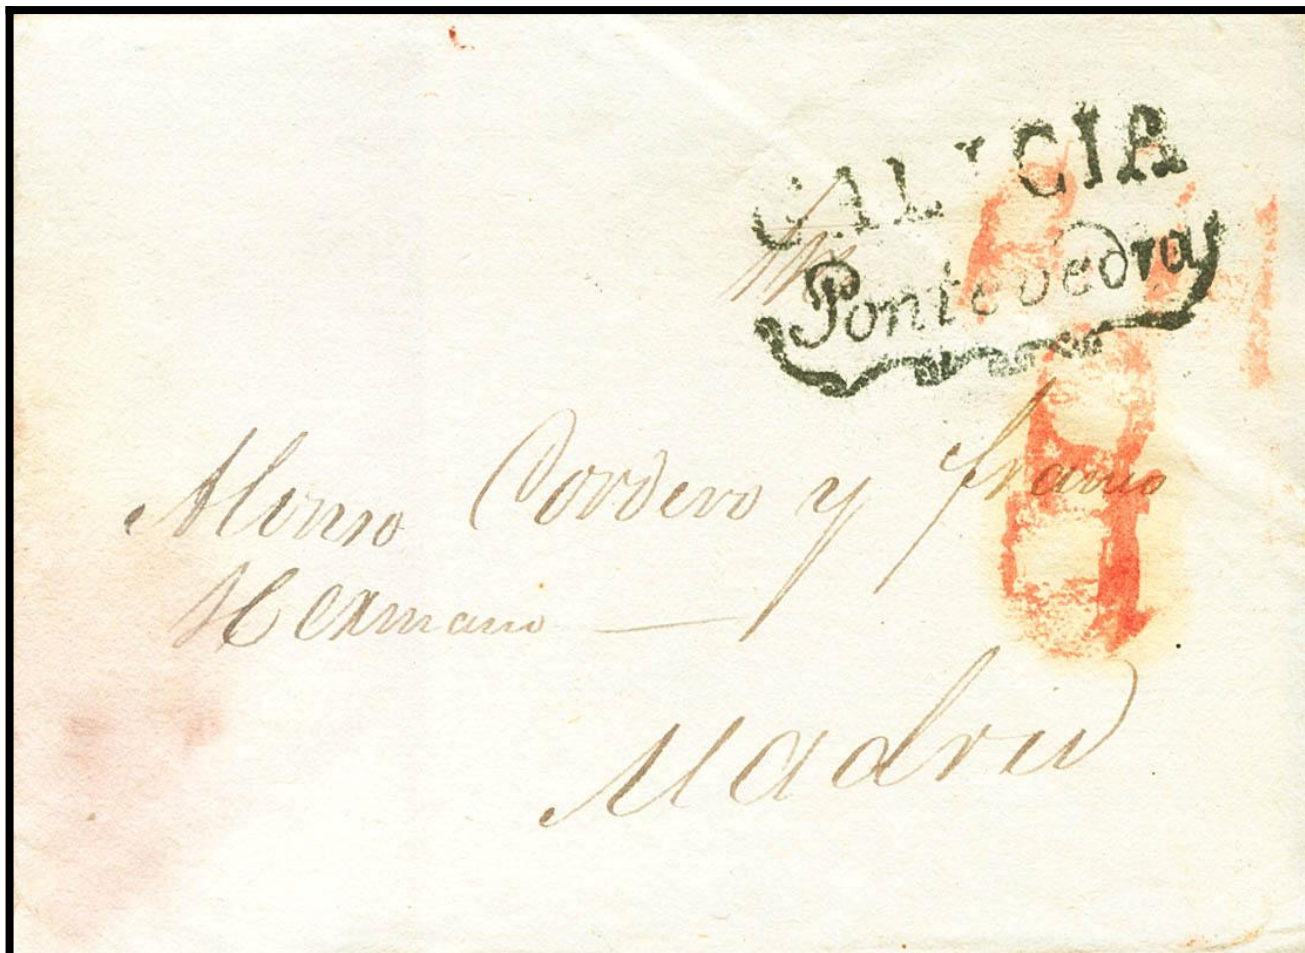 GALICIA
Pontevedra
Alonso Cordero y
Hermano
Madrid